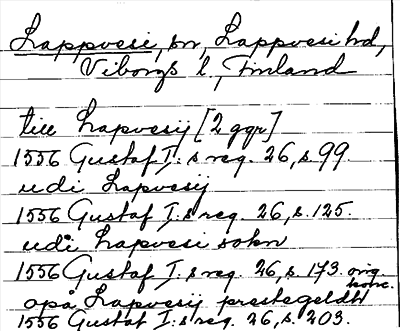 Lappvesi, sn, Lappvesi hd,
Viborgs l., Finland
till Lapvesij [2 ggr]
1556 Gustaf I:s reg. 26, s. 99.
udi Lapvesij
1556 Gustaf I:s reg. 26, s. 125.
udi Lapvesi sokn
1556 Gustaf I:s reg. 26, s. 173. orig.
konc.
opå Lapvesij prestegeldh
1556 Gustaf I:s reg. 26, s. 203.